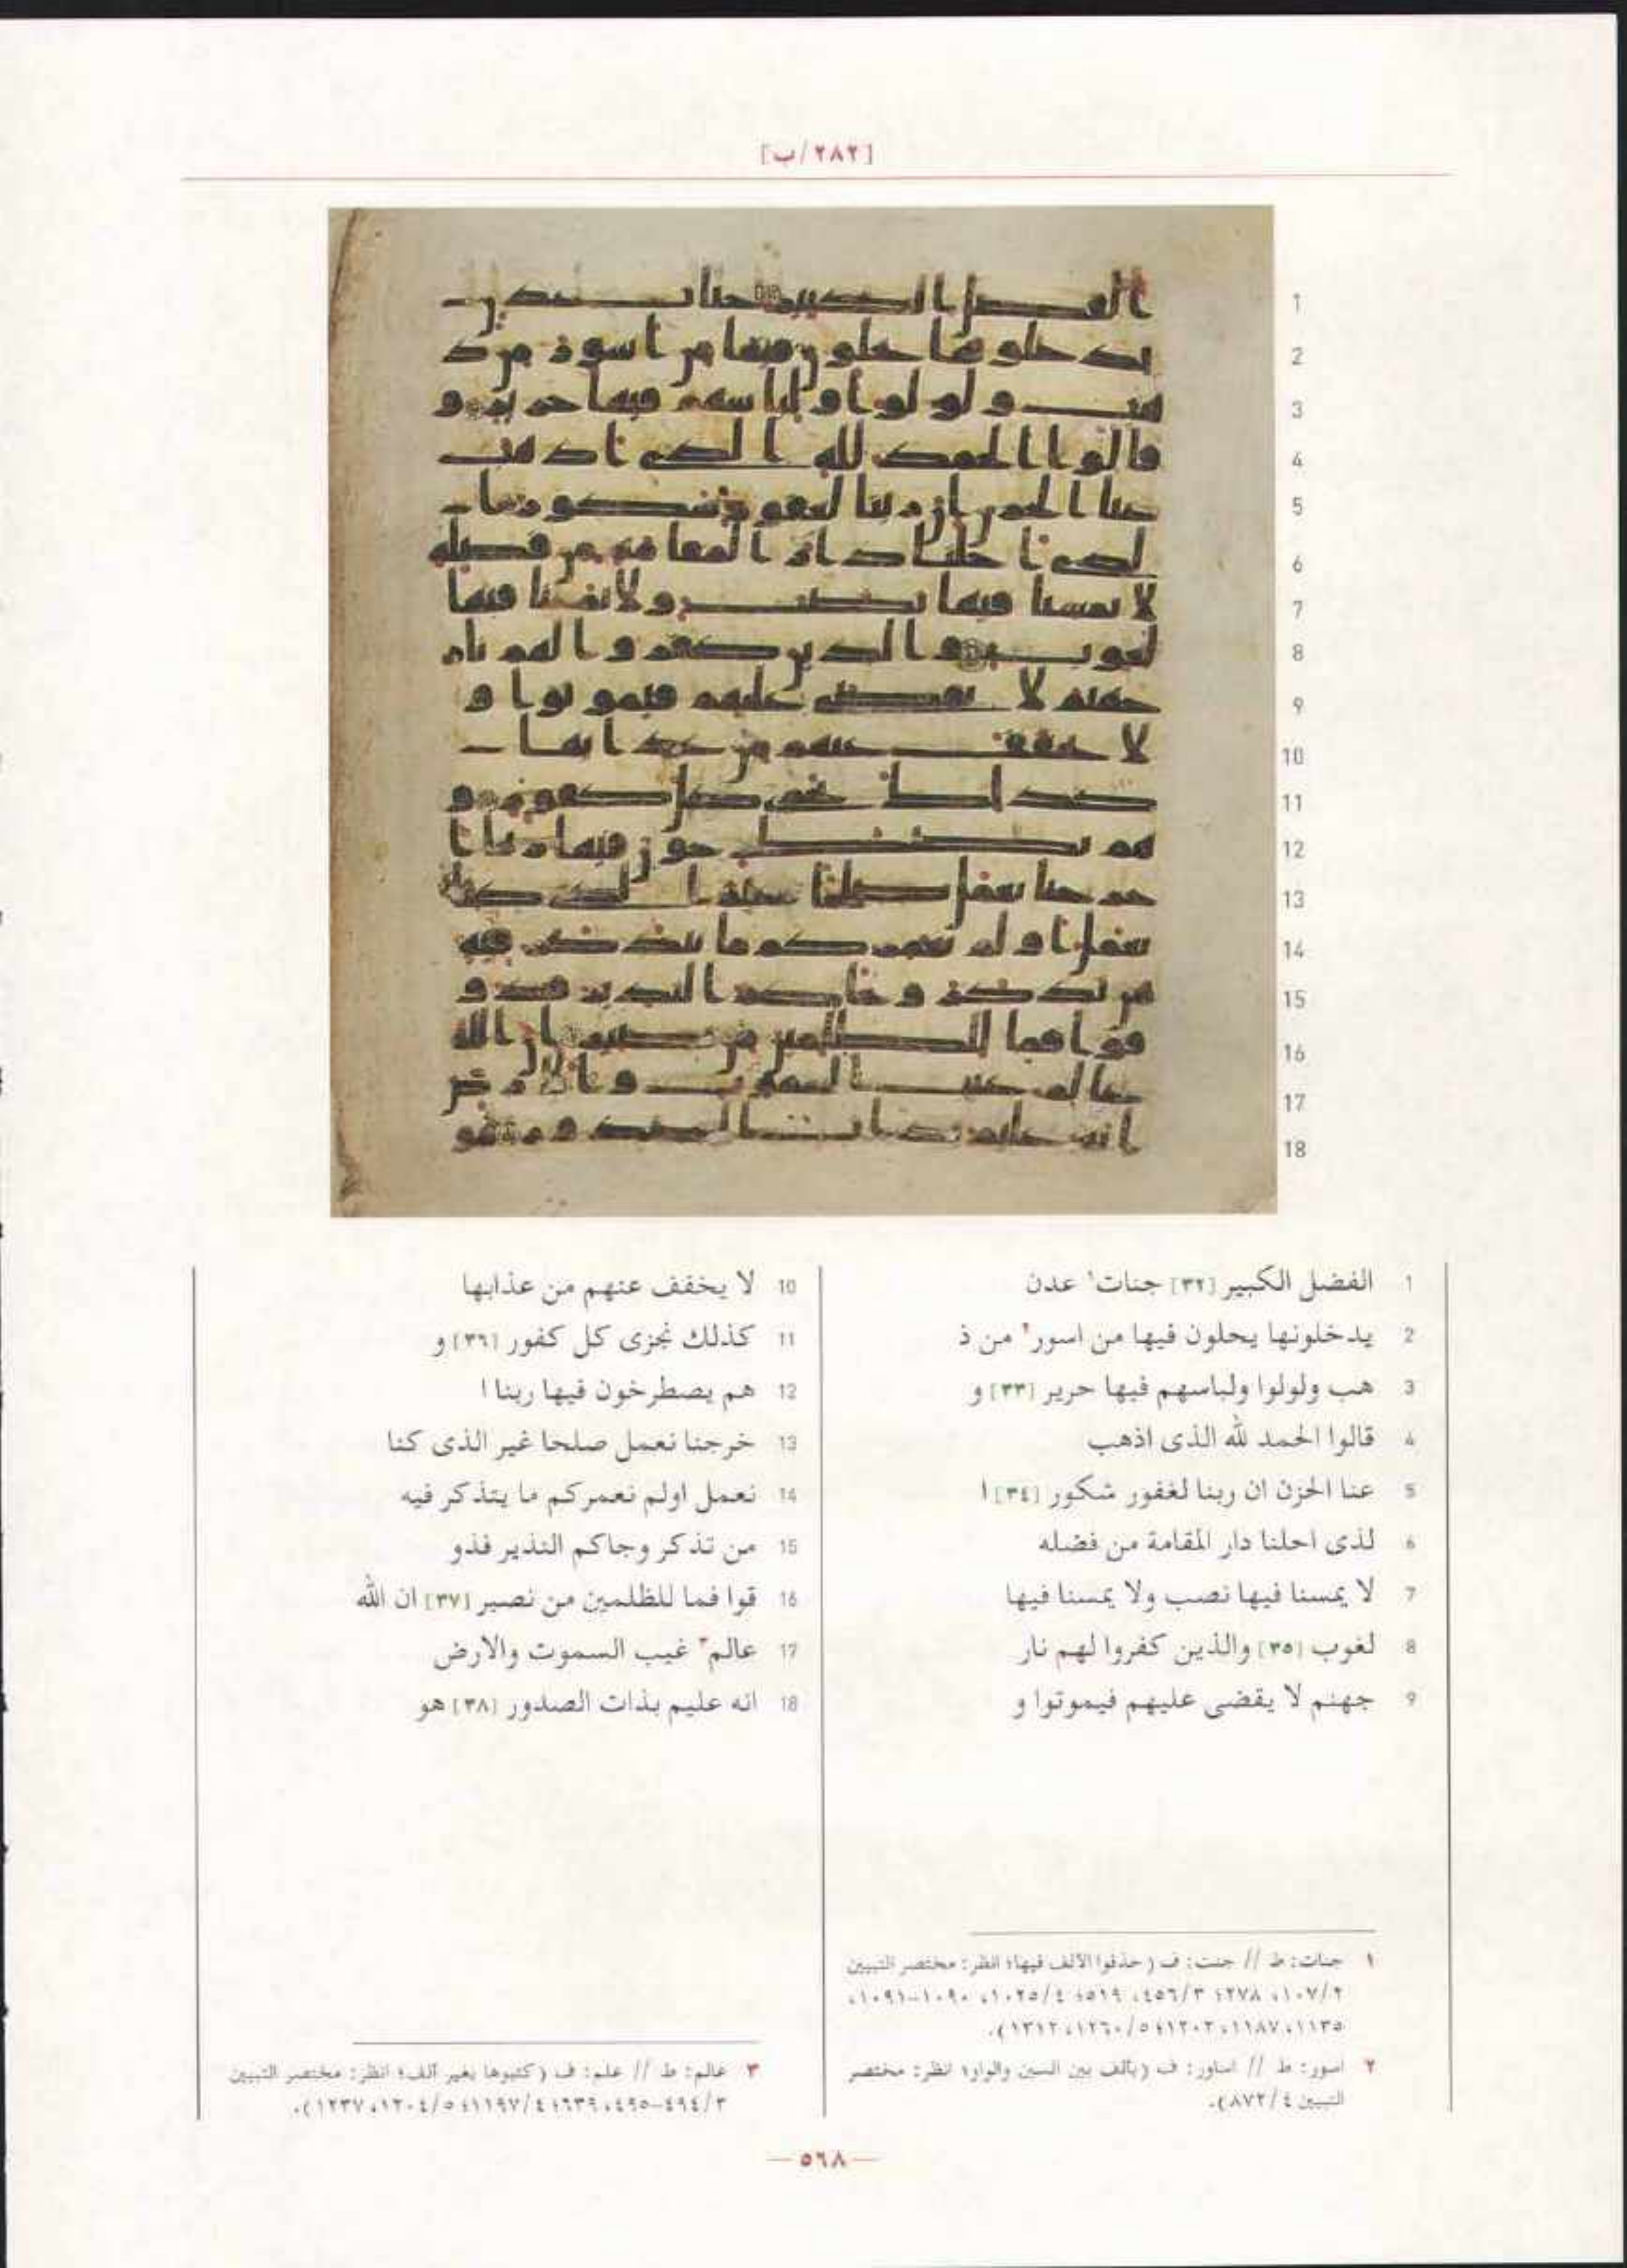 [٢٨٢/ب]
1 الفضل الكبير [٣٢] جنات١ عدن
2 يدخلونها يحلون فيها من اسور٢ من ذ
3 هب ولولوا ولباسهم فيها حرير [٣٣] و
4 قالوا الحمد لله الذى اذهب
5 عنا الحزن ان ربنا لغفور شكور [٣٤] ا
6 لذى احلنا دار المقامة من فضله
7 لا يمسنا فيها نصب ولا يمسنا فيها
8 لغوب [٣٥] والذين كفروا لهم نار
9 جهنم لا يقضى عليهم فيموتوا و
10 لا يخفف عنهم من عذابها
11 كذلك نجزى كل كفور [٣٦] و
12 هم يصطرخون فيها ربنا ا
13 خرجنا نعمل صلحا غير الذى كنا
14 نعمل اولم نعمركم ما يتذكر فيه
15 من تذكر وجاكم النذير فذو
16 قوا فما للظلمين من نصير [٣٧] ان الله
17 عالم٣ غيب السموت والارض
18 انه عليم بذات الصدور [٣٨] هو
١ جنات: ط // جنت: ف (حذفوا الألف فيها؛ انظر: مختصر التبيين
٢/١٠٧، ٢٧٨؛ ٣/٤٥٦، ٥١٩؛ ٤/١٠٢٥، ١٠٩٠-١٠٩١،
١١٣٥، ١١٨٧، ١٢٠٢؛ ٥/١٢٦٠، ١٣١٢).
٢ اسور: ط // اساور: ف (بألف بين السين والواو؛ انظر: مختصر
التبيين ٤/٨٧٢).
٣ عالم: ط // علم: ف (كتبوها بغير ألف؛ انظر: مختصر التبيين
٣/٤٩٤-٤٩٥، ٦٣٩؛ ٤/١١٩٧؛ ٥/١٢٠٤، ١٢٣٧).
— ٥٦٨ —